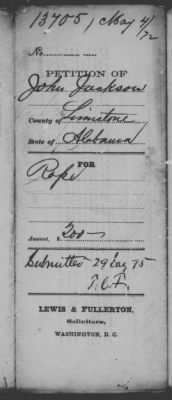 13705, May 4/72
No.
PETITION OF
John Jackson
County of Limestone
State of Alabama
FOR
Rope
Amount, $ 200-
Submitted 29 Jay 75
T.C.F.
LEWIS & FULLERTON,
Solicitors,
WASHINGTON, D. C.